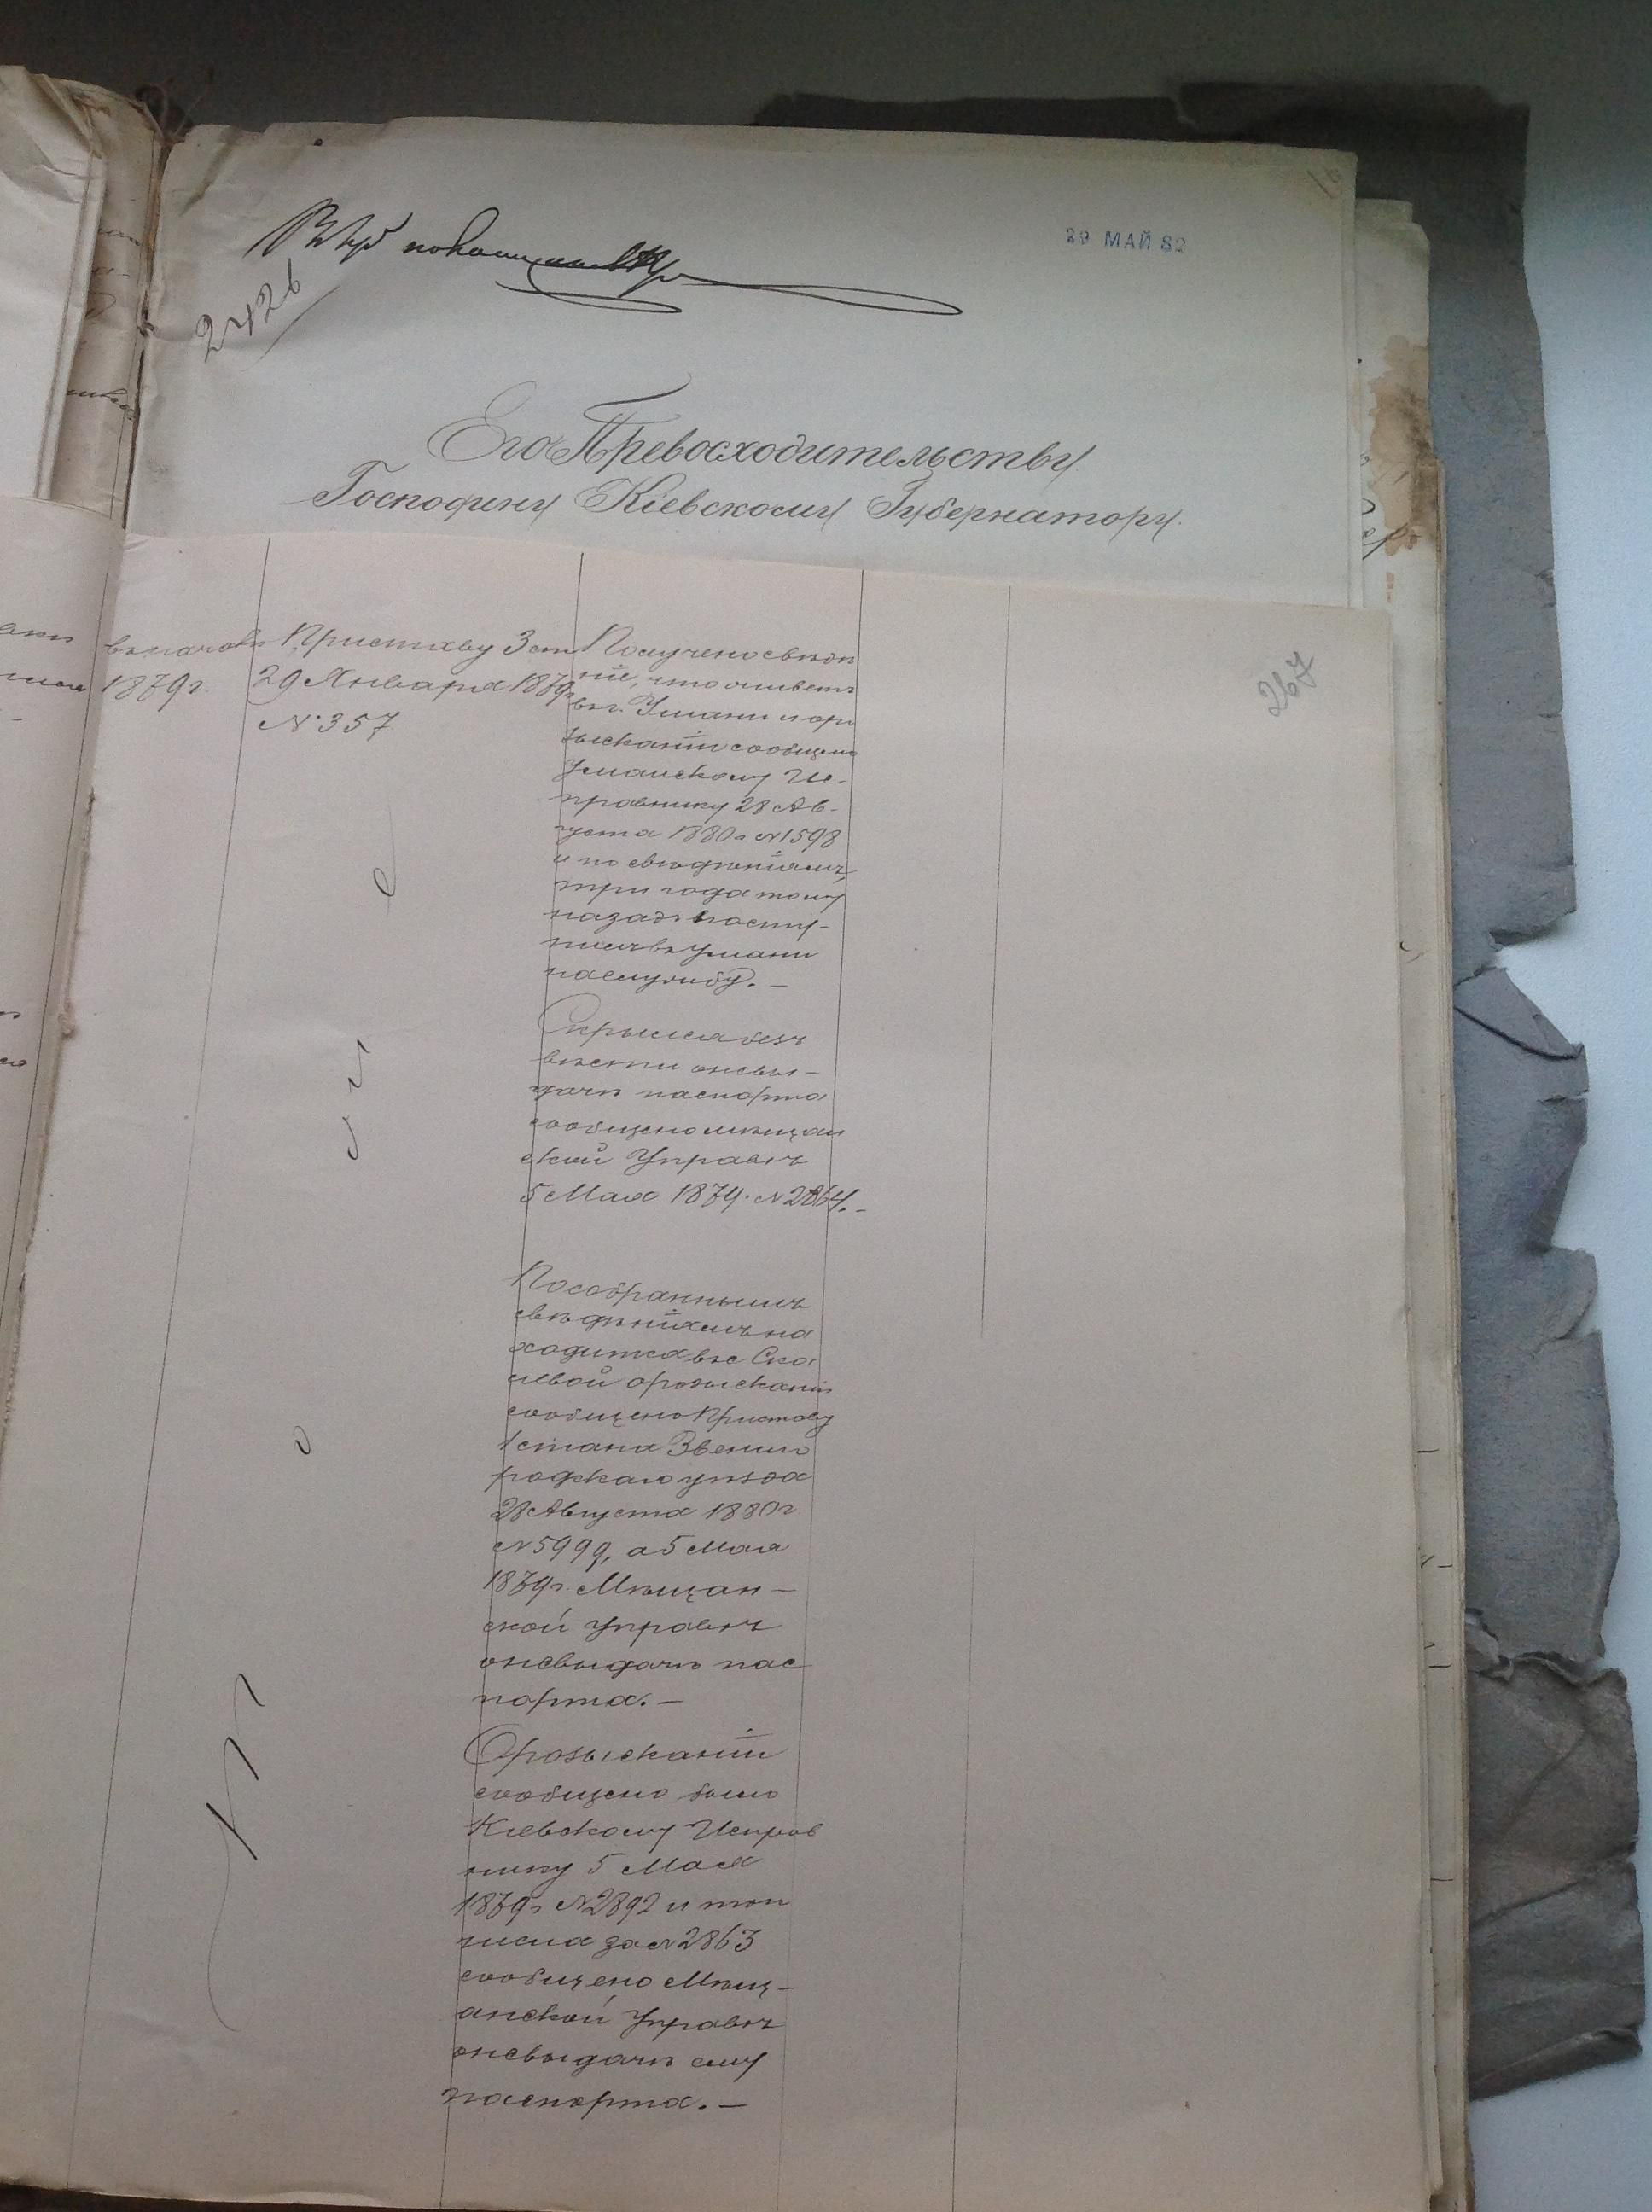 29 МАЙ 82
2426
Его Превосходительству
Господину Кіевскому Губернатору.
267
въ началѣ
1879 г.
Приставу 3 ст
29 Января 1879 г
№ 357
Получено свѣдѣ
ніе, что живетъ
въ г. Умани и о ро
зысканіи сообщено
Уманскому Ис-
правнику 28 Ав-
густа 1880 г №1598
и по свѣдѣніямъ,
три года тому
назадъ посту-
пилъ въ Умани
на службу. —
Скрылся безъ
вѣсти о невы-
дачѣ паспорта
сообщено мѣщан
ской Управѣ
5 Мая 1879. № 2864. —
По собраннымъ
свѣдѣніямъ на
ходится въ с
о розысканіи
сообщено Приставу
1 стана Звениго
родскаго уѣзда
28 Августа 1880 г
№ 5999, а 5 Мая
1879 г. Мѣщан —
ской Управѣ
о невыдачѣ пас
порта. —
О розысканіи
сообщено было
Кіевскому Исправ
нику 5 Мая
1879 г №2892 и того
числа за №2863
сообщено Мѣщ —
анской Управѣ
о невыдачѣ ему
паспорта. —